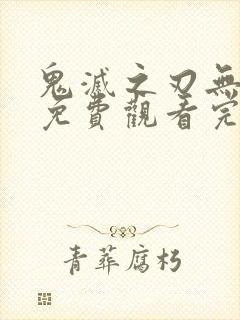 鬼滅之刃無
免費觀看完
青葬腐朽